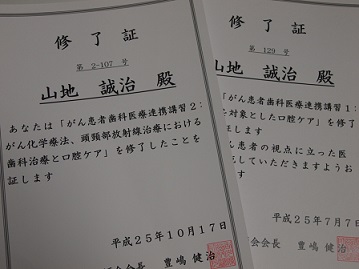 修了証
第 2-107 号
山地 誠治 殿
あなたは「がん患者歯科医療連携講習2:
がん化学療法、頭頸部放射線治療における
歯科治療と口腔ケア」を修了したことを
証します
平成25年10月17日
会長 豊嶋 健治
修了証
第 129 号
山地 誠治 殿
「がん患者歯科医療連携講習1:
を対象とした口腔ケア」を修了
証します
ん患者の視点に立った医
していただきますようお
す
平成25年7月7日
会会長 豊嶋 健治